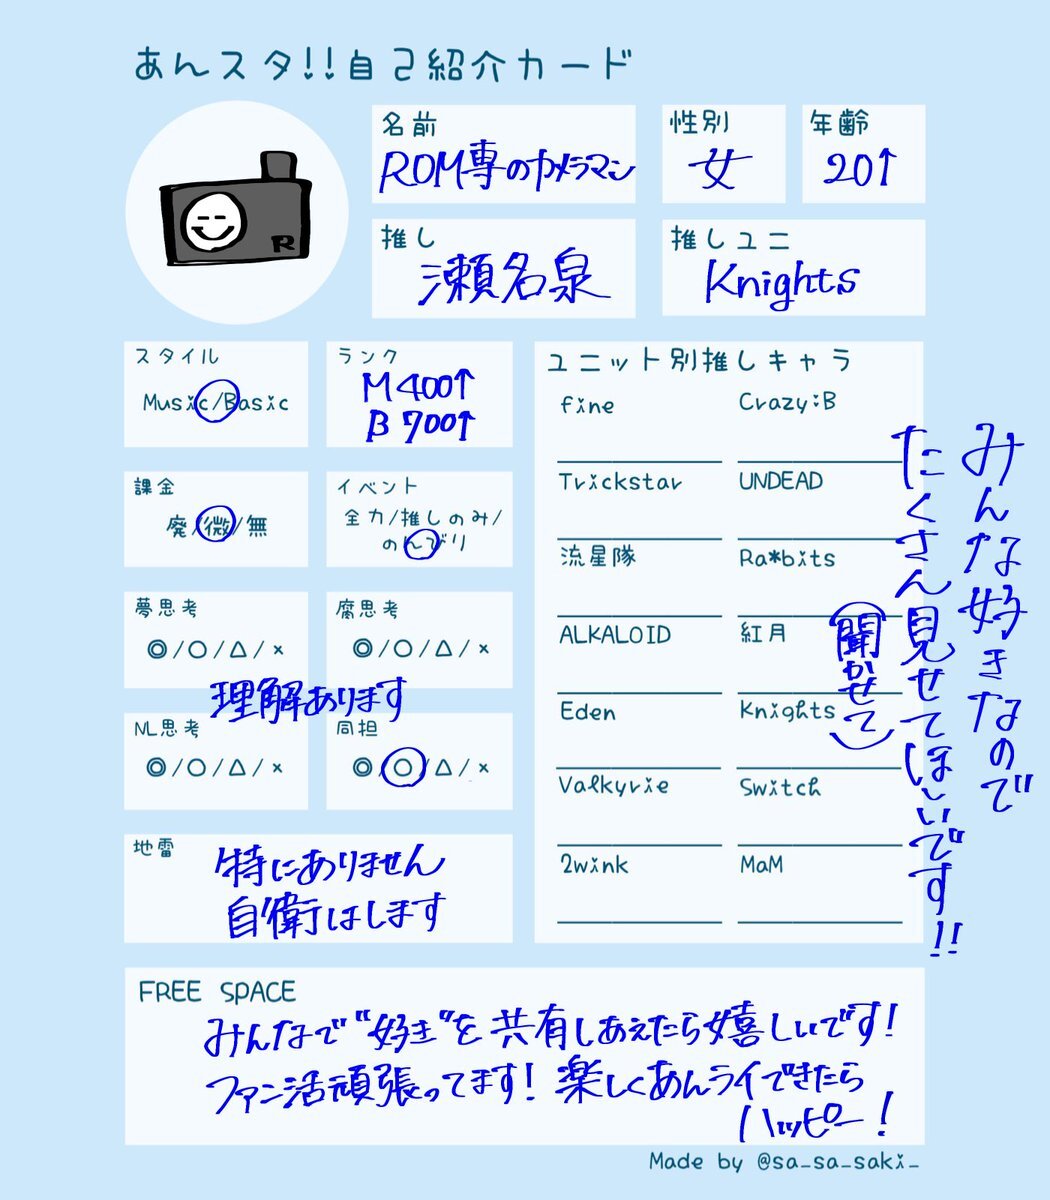 あんスタ!!自己紹介カード
R
名前
ROM専のカメラマン
性別
女
年齢
20↑
推し
瀬名泉
推しユニ
Knights
スタイル
Music/Basic
ランク
M400↑
B700↑
課金
廃/微/無
イベント
全力/推しのみ/
のんびり
夢思考
◎/○/△/×
腐思考
◎/○/△/×
理解あります
NL思考
◎/○/△/×
同担
◎/○/△/×
地雷
特にありません
自衛はします
ユニット別推しキャラ
fine
Crazy:B
Trickstar
UNDEAD
流星隊
Ra*bits
ALKALOID
紅月
Eden
Knights
Valkyrie
Switch
2wink
MaM
みんな好きなので
たくさん見せてほしいです!!
(聞かせて)
FREE SPACE
みんなで"好き"を共有しあえたら嬉しいです!
ファン活頑張ってます! 楽しくあんライできたら
ハッピー!
Made by @sa_sa_saki_